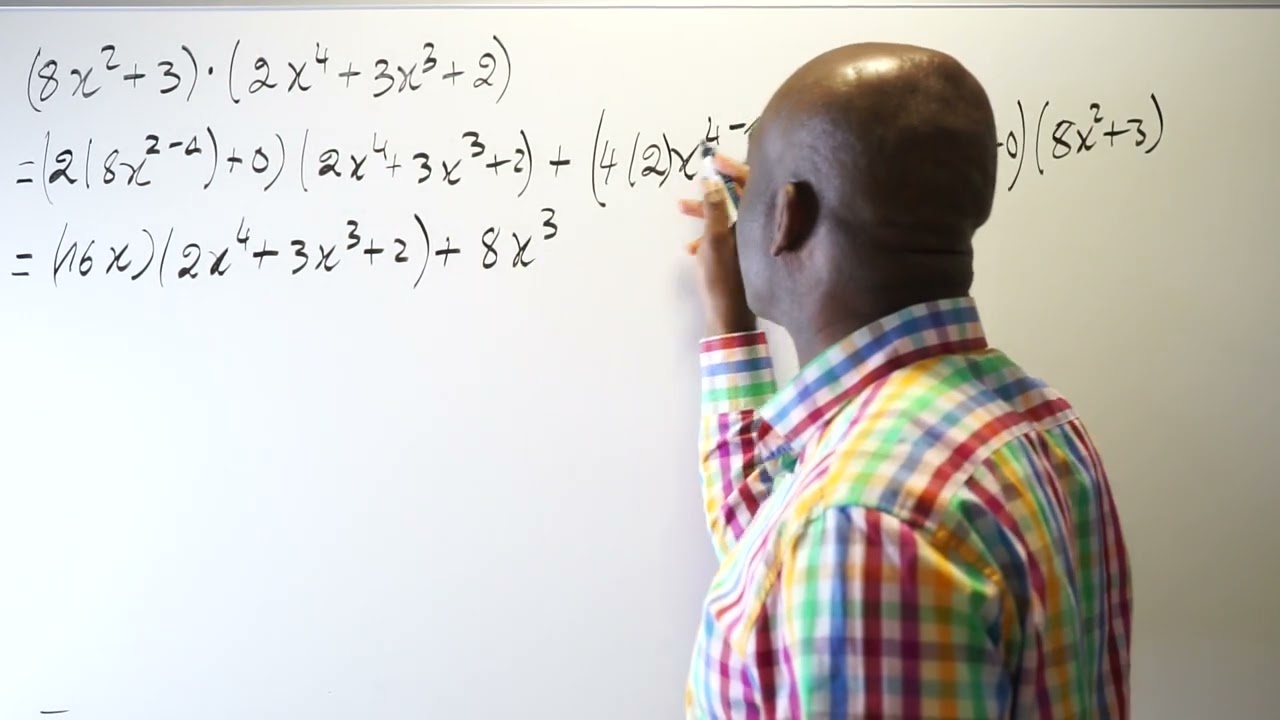 (8x²+3)·(2x⁴+3x³+2)
=(2(8x²⁻¹)+0)(2x⁴+3x³+2)+(4(2)x⁴⁻ 0)(8x²+3)
=(16x)(2x⁴+3x³+2)+8x³